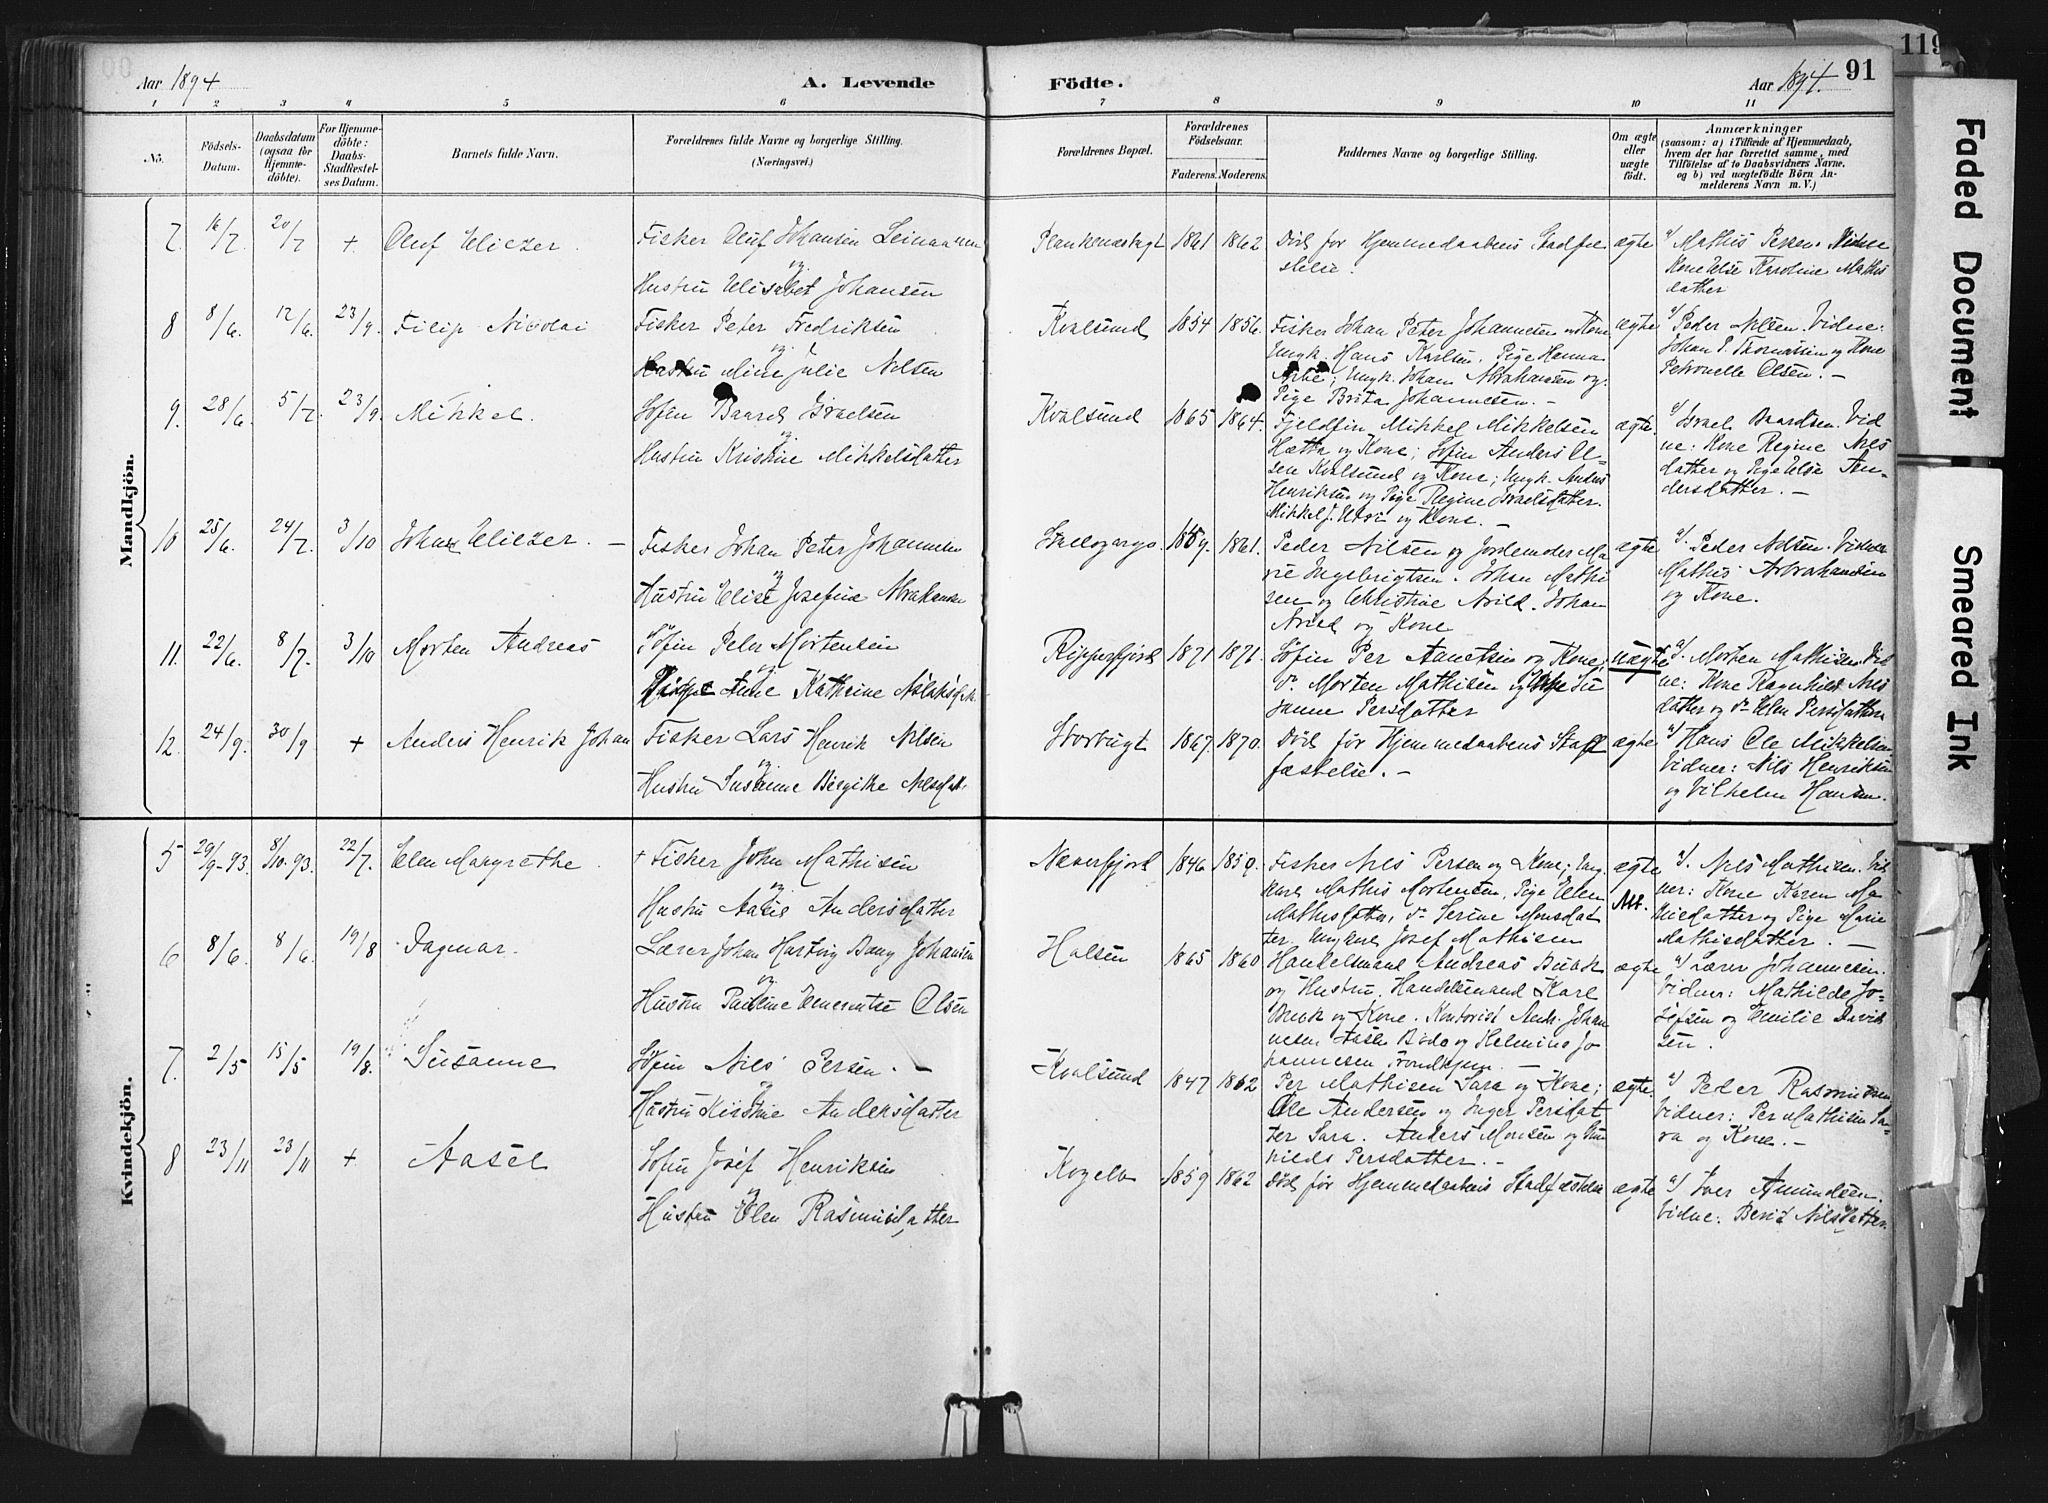 Aar 1894
A. Levende
Födte.
Aar 1894.
91
119
1 2 3 4 5 6 7 8 9 10 11
No.
Födsels-
Datum.
Daabsdatum
(ogsaa for
Hjemme-
döbte).
For Hjemme-
döbte:
Daabs-
Stadfæstel-
ses Datum.
Barnets fulde Navn.
Forældrenes fulde Navne og borgerlige Stilling.
(Næringsvei.)
Forældrenes Bopæl.
Forældrenes
Födselsaar.
Faderens. Moderens.
Faddernes Navne og borgerlige Stilling.
Om ægte
eller
uægte
födt.
Anmærkninger
(saasom: a) i Tilfælde af Hjemmedaab,
hvem der har forrettet samme, med
Tilföielse af to Daabsvidners Navne,
og b) ved uægtefödte Börn An-
melderens Navn m. V.)
Mandkjön.
7. 16/7 20/7 + Oluf Eliezer.
Fisker Oluf Johansen
og
Hustru Elisabet Johansen
1861 1862
Död for Hjemmedaabens Stadfæ
stelse.
ægte
a) Mathis Persen Vidne
Kone Else Karoline Mathis
datter
8 8/6. 12/6. 23/9. Filip Nicolai
Fisker Peter Fredriksen
og
Hustru Julie Nilsen
Kvalsund 1854 1856.
Fisker Johan Peter Johannesen og Kone
Ungk. Hans Karlsen. Pige Hanna
Ungk. Johan Abrahamsen og
Pige Brita Johannesen. –
ægte
a) Peder Nilsen. Vidne:
Johan P. Thomassen og Kone
Petronelle Olsen. –
9. 28/6 5/7 23/9. Mikkel.
Söfin Baard Israelsen
og
Hustru Kristine Mikkelsdatter
Kvalsund 1865 1864.
Fjeldfin Mikkel Mikkelsen
Hætta og Kone; Söfin Anders Ol-
sen Kvalsund og Kone; Ungk. Anders
Henriksen og Pige Regine Israelsdatter.
Mikkel J. Utsi og Kone. –
ægte.
a) Israel Baardsen. Vid
ne: Kone Regine Nils
datter og Pige Else An-
dersdatter. –
10 25/6. 24/7. 3/10 Johan Eliezer. –
Fisker Johan Peter Johannesen
og
Hustru Elise Josefine
1859. 1861.
Peder Nilsen og Jordemoder Ma-
rie Ingebrigtsen. Johan Mathi
sen og Christine Arild. Johan
Arild og Kone
ægte
a). Peder Nilsen. Vidner
Mathis Abrahamsen
og Kone.
11. 22/6. 8/7. 3/10 Morten Andreas
Söfin Peder Mortensen
og
Pige Ane Kathrine
Ripperfjord 1871 1871.
Söfin Per og Kone;
Do Morten Mathisen og Pige Su
sanne Persdatter
uægte
a). Morten Mathisen. Vid
ne: Kone Ragnhild Nils
datter og do Elen Persdatter
12. 24/9. 30/9 + Anders Henrik Johan
Fisker Lars Henrik Nilsen
og
Hustru Susanne Birgitte Nilsdatt.
Storbugt 1867. 1870.
Död för Hjemmedaabens Stad
fæstelse. –
ægte
a) Hans Ole Mikkelsen
Vidner: Nils Henriksen
og Vilhelm Hansen.
Kvindekjön.
5 29/9-93. 8/10.93. 22/7. Elen Margrethe
+ Fisker John Mathisen
og
Hustru Aasel Andersdatter
Neverfjord 1846 1850.
Fisker Nils Persen og Kone; Ung
karl Mathis Mortensen, Pige Elen
Mathisdatter, do Serine Monsdat
ter. Ungkarl Josef Mathisen
ægte
a). Nils Mathisen. Vid
ner: Kone Karen Ma-
thisdatter og Pige Marie
Mathisdatter. –
6 8/6. 8/6. 19/8 Dagmar.
Lærer Johan Hartvig Bang Johansen
og
Hustru Pauline Olsen
1865 1860
Handelsmand Andreas Buck
og Hustru. Handelsmand Karl
Buck og Kone. Kontorist Andr. Johan
nesen Bodö og Jo
hannesen Trondhjem. –
ægte
a) Lærer Johannesen.
Vidner: Mathilde Jo-
sefsen og Emilie David
sen.
7. 2/5 15/5 19/8. Susanne
Söfin Nils Persen. –
og
Hustru Kirstine Andersdatter
Kvalsund 1847 1862
Per Mathisen Sara og Kone;
Ole Andersen og Inger Persdat
ter Sara. Anders Monsen og Gun
hild Persdatter. –
ægte.
a) Peder Rasmussen
Vidner: Per Mathisen Sa-
ra og Kone. –
8 23/11 23/11 + Aasel
Söfin Josef Henriksen
og
Hustru Elen Rasmusdatter
1859 1862
Död för Hjemmedaabens Stadfæstelse
ægte
a) Iver Amundsen.
Vidne: Berit Nilsdatter.
Faded Document
Smeared Ink